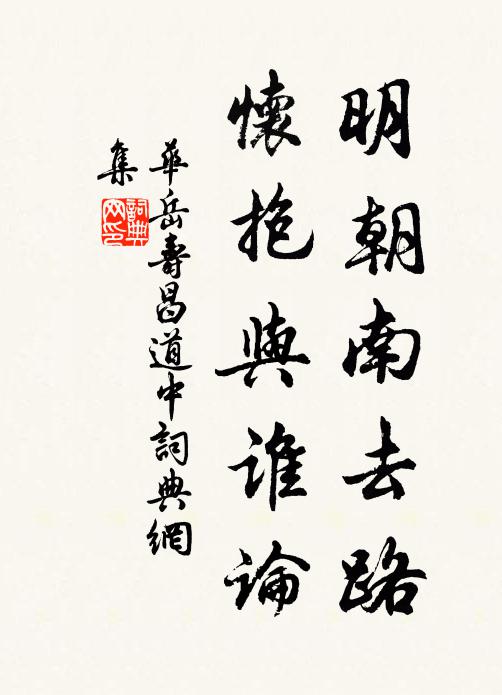 明朝南去路
懷抱與誰論
華岳壽昌道中詞典網
集
詞典
网印